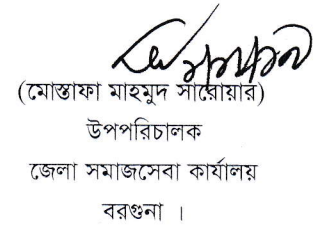 (মোস্তাফা মাহমুদ সারোয়ার)
উপপরিচালক
জেলা সমাজসেবা কার্যালয়
বরগুনা ।